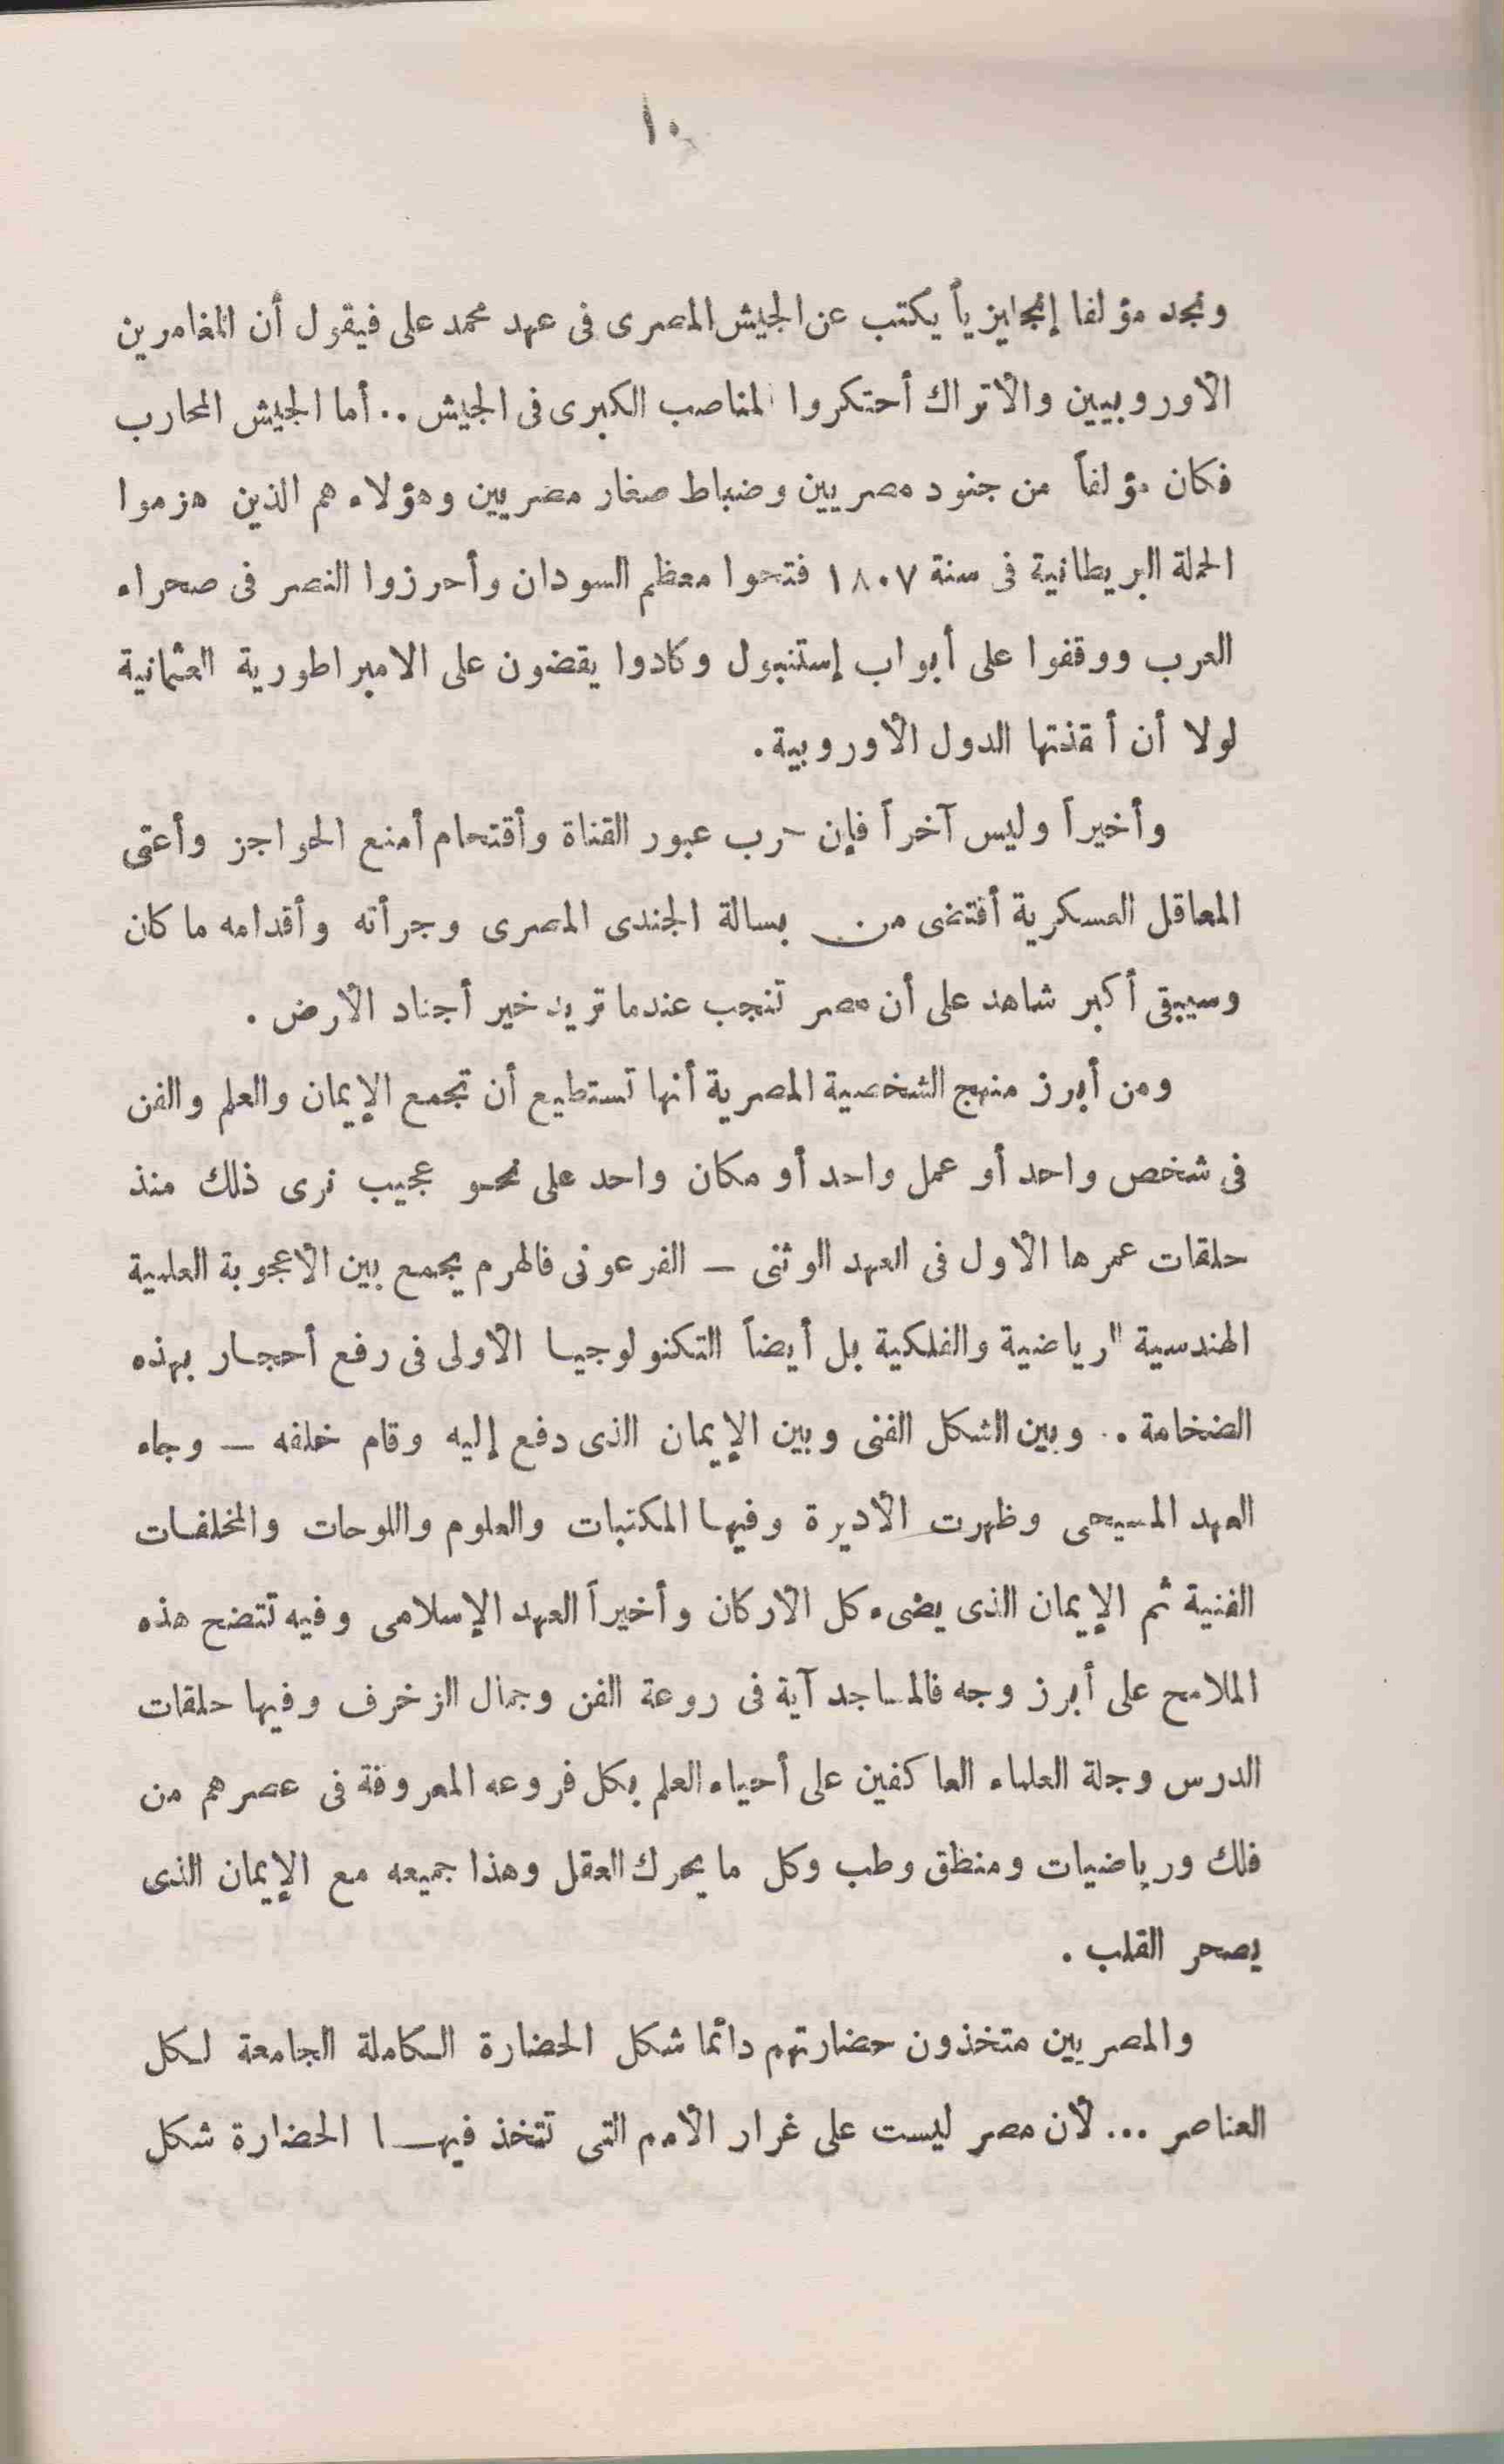 ١٠
ونجد مؤلفا إنجليزياً يكتب عن الجيش المصرى فى عهد محمد على فيقول أن المغامرين
الأوروبيين والأتراك أحتكروا المناصب الكبرى فى الجيش .. أما الجيش المحارب
فكان مؤلفاً من جنود مصريين وضباط صغار مصريين وهؤلاء هم الذين هزموا
الحملة البريطانية فى سنة ١٨٠٧ فتحوا معظم السودان وأحرزوا النصر فى صحراء
العرب ووقفوا على أبواب إستنبول وكادوا يقضون على الامبراطورية العثمانية
لولا أن أنقذتها الدول الأوروبية .
وأخيراً وليس آخراً فإن حرب عبور القناة وأقتحام أمنع الحواجز وأعتى
المعاقل العسكرية أقتضى من بسالة الجندى المصرى وجرأته وأقدامه ما كان
وسيبقى أكبر شاهد على أن مصر تنجب عندما تريد خير أجناد الأرض .
ومن أبرز منهج الشخصية المصرية أنها تستطيع أن تجمع الإيمان والعلم والفن
فى شخص واحد أو عمل واحد أو مكان واحد على نحو عجيب نرى ذلك منذ
حلقات عمرها الأول فى العهد الوثنى — الفرعونى فالهرم يجمع بين الأعجوبة العلمية
الهندسية الرياضية والفلكية بل أيضاً التكنولوجيا الأولى فى رفع أحجار بهذه
الضخامة .. وبين الشكل الفنى وبين الإيمان الذى دفع إليه وقام خلفه — وجاء
العهد المسيحى وظهرت الأديرة وفيها المكتبات والعلوم واللوحات والمخلفات
الفنية ثم الإيمان الذى يضىء كل الأركان وأخيراً العهد الإسلامى وفيه تتضح هذه
الملامح على أبرز وجه فالمساجد آية فى روعة الفن وجمال الزخرف وفيها حلقات
الدرس وجلة العلماء العاكفين على أحياء العلم بكل فروعه المعروفة فى عصرهم من
فلك ورياضيات ومنطق وطب وكل ما يحرك العقل وهذا جميعه مع الإيمان الذى
يصحر القلب .
والمصريين متخذون حضارتهم دائما شكل الحضارة الكاملة الجامعة لكل
العناصر ... لأن مصر ليست على غرار الأمم التى تتخذ فيها الحضارة شكل